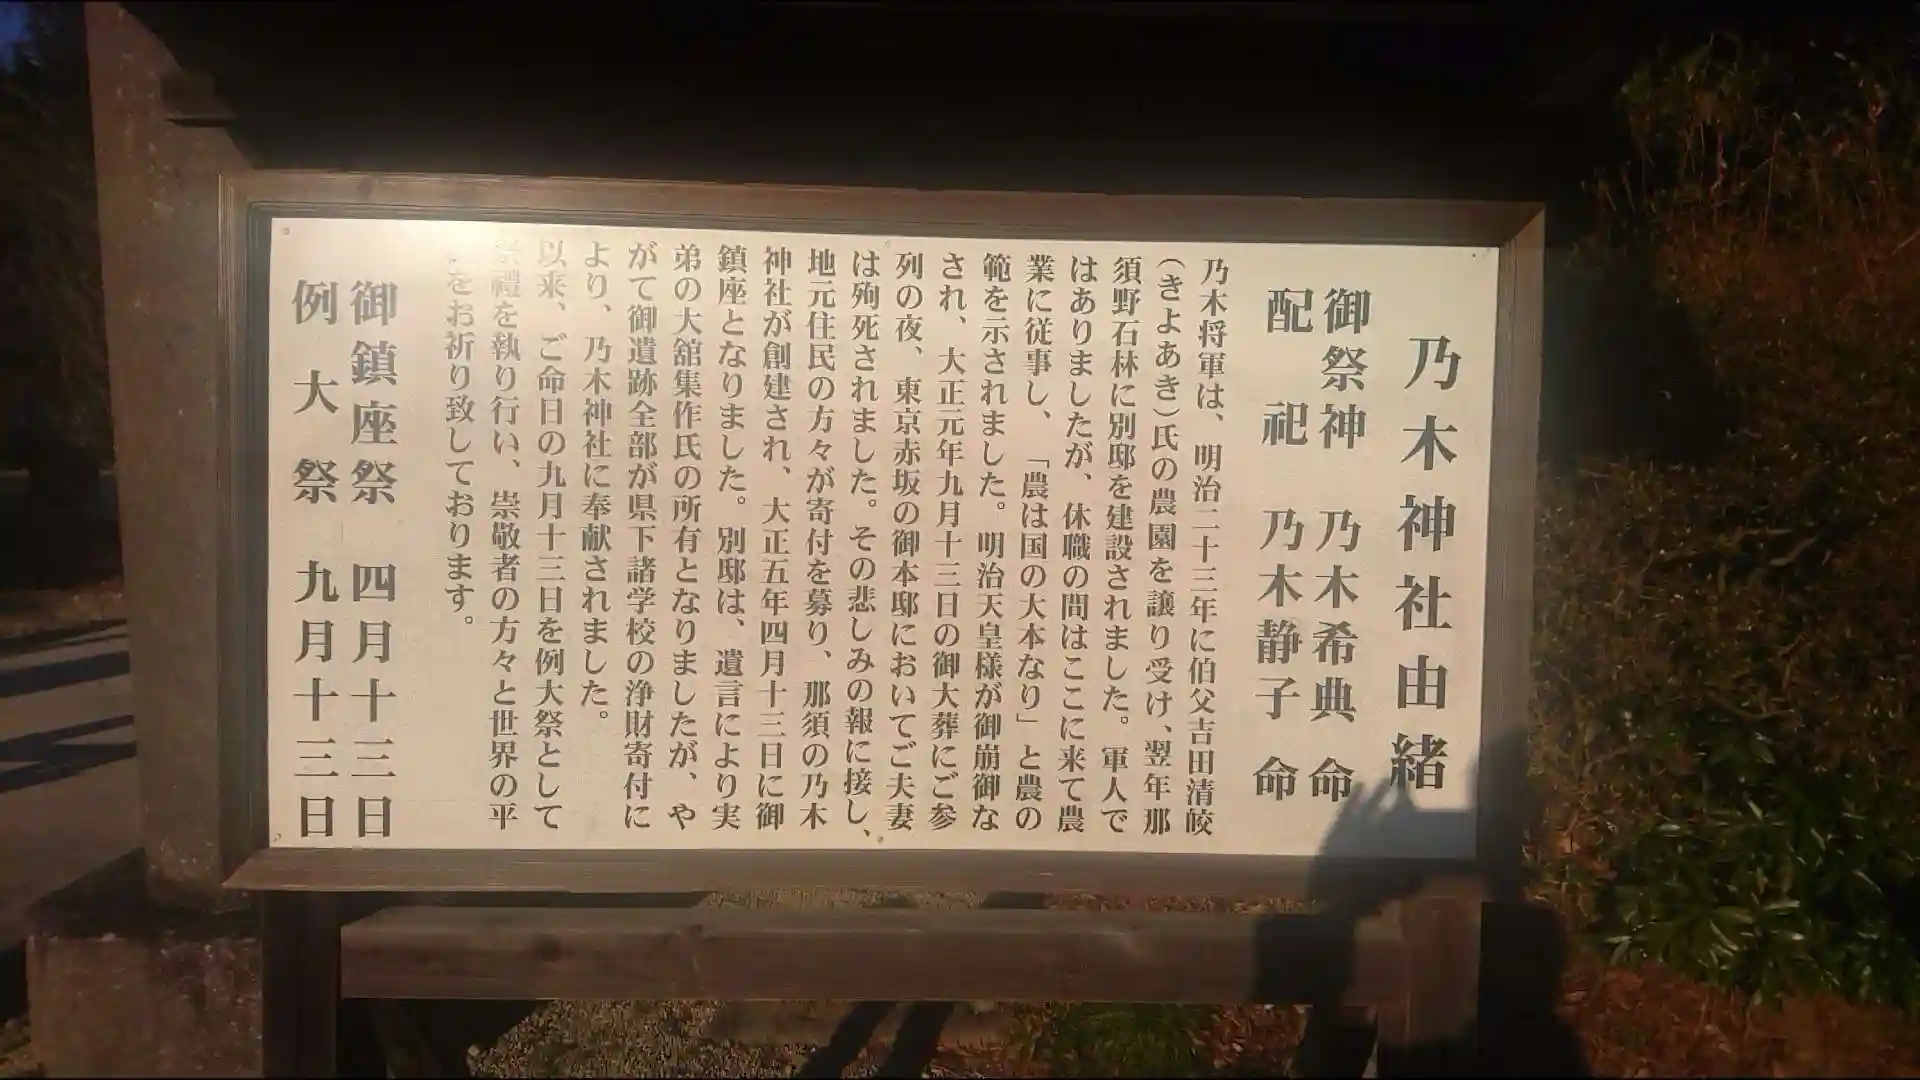 乃木神社由緒
御祭神 乃木希典 命
配祀 乃木静子 命
乃木将軍は、明治二十三年に伯父吉田清皎
(きよあき)氏の農園を譲り受け、翌年那
須野石林に別邸を建設されました。軍人で
はありましたが、休職の間はここに来て農
業に従事し、「農は国の大本なり」と農の
範を示されました。明治天皇様が御崩御な
され、大正元年九月十三日の御大葬にご参
列の夜、東京赤坂の御本邸においてご夫妻
は殉死されました。その悲しみの報に接し、
地元住民の方々が寄付を募り、那須の乃木
神社が創建され、大正五年四月十三日に御
鎮座となりました。別邸は、遺言により実
弟の大舘集作氏の所有となりましたが、や
がて御遺跡全部が県下諸学校の浄財寄付に
より、乃木神社に奉献されました。
以来、ご命日の九月十三日を例大祭として
祭禮を執り行い、崇敬者の方々と世界の平
をお祈り致しております。
御鎮座祭 四月十三日
例大祭 九月十三日